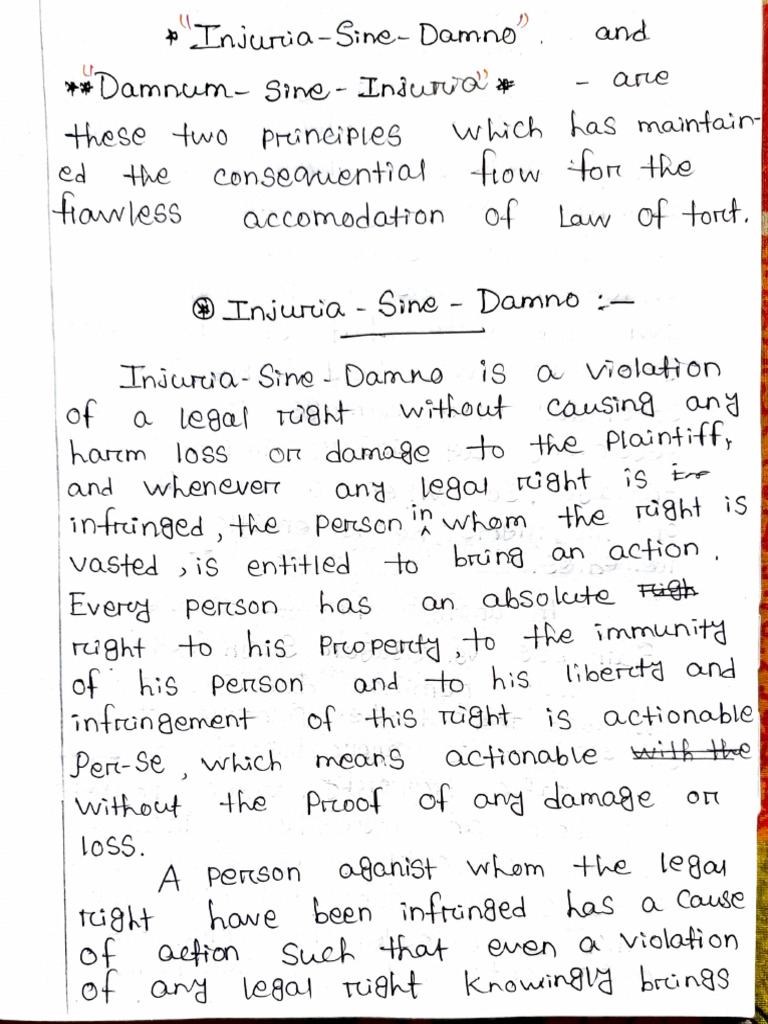 * "Injuria-Sine-Damno". and
** "Damnum-Sine-Injuria" * - are
these two principles which has maintain-
ed the consequential flow for the
flawless accomodation of Law of tort.
⊛ Injuria - Sine - Damno :-
Injuria-Sine-Damno is a violation
of a legal right without causing any
harm loss or damage to the Plaintiff,
and whenever any legal right is
infringed, the person in whom the right is
vasted, is entitled to bring an action.
Every person has an absolute righ
right to his Property, to the immunity
of his person and to his liberty and
infringement of this right is actionable
Per-se, which means actionable with the
without the Proof of any damage or
loss.
A person aganist whom the legal
right have been infringed has a cause
of action such that even a violation
of any legal right knowingly brings